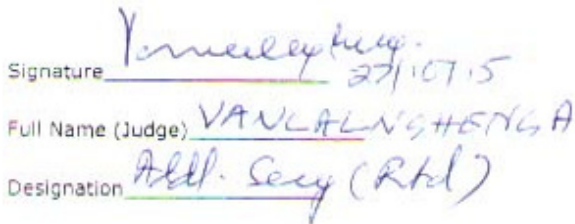 Signature
27/07/15
Full Name (Judge) VANLALNGHENGA
Designation Addl. Secy (Rtd)